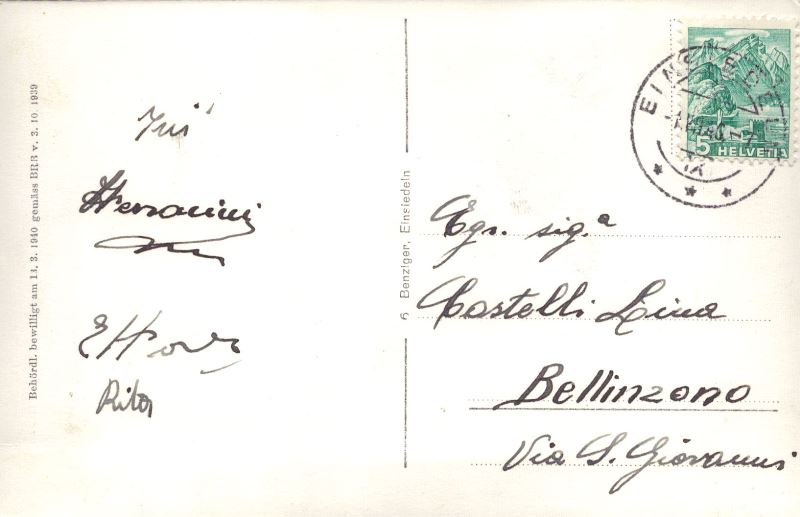 Behördl. bewilligt am 13. 3. 1940 gemäss BRB v. 3. 10. 1939
Ettore
Rita
6 Benziger, Einsiedeln
EINSIEDELN
5 HELVETIA
Egr. sig.a
Castelli Lina
Bellinzona
Via S. Giovanni